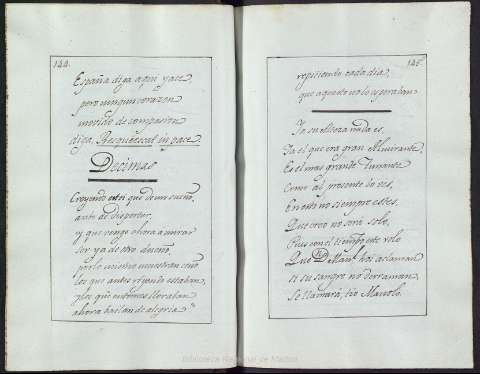 144.
España diga aqui yace
pero ningun corazon
movido de compasion
diga, Resquiescat in pace.
Decimas
Creyendo estoi que de un sueño,
acave de dispertar,
y que vengo ahora a mirar
ser ya de otro dueño,
los que antes
y los que entonces lloraban
ahora hablan de alegria
145
repitiendo cada dia,
que aquesto no lo esperaban.
Ya su Alteza nada es,
Ya el que era gran Almirante
Es el mas grande Tunante
Como al presente lo ves,
En esto no siempre estes,
Que creo no sera solo,
Pues con el tiempo este
Que Dn Man.l hoi aclaman
si su sangre no derraman,
Se llamará, tio Manolo.
Biblioteca Regional de Madrid